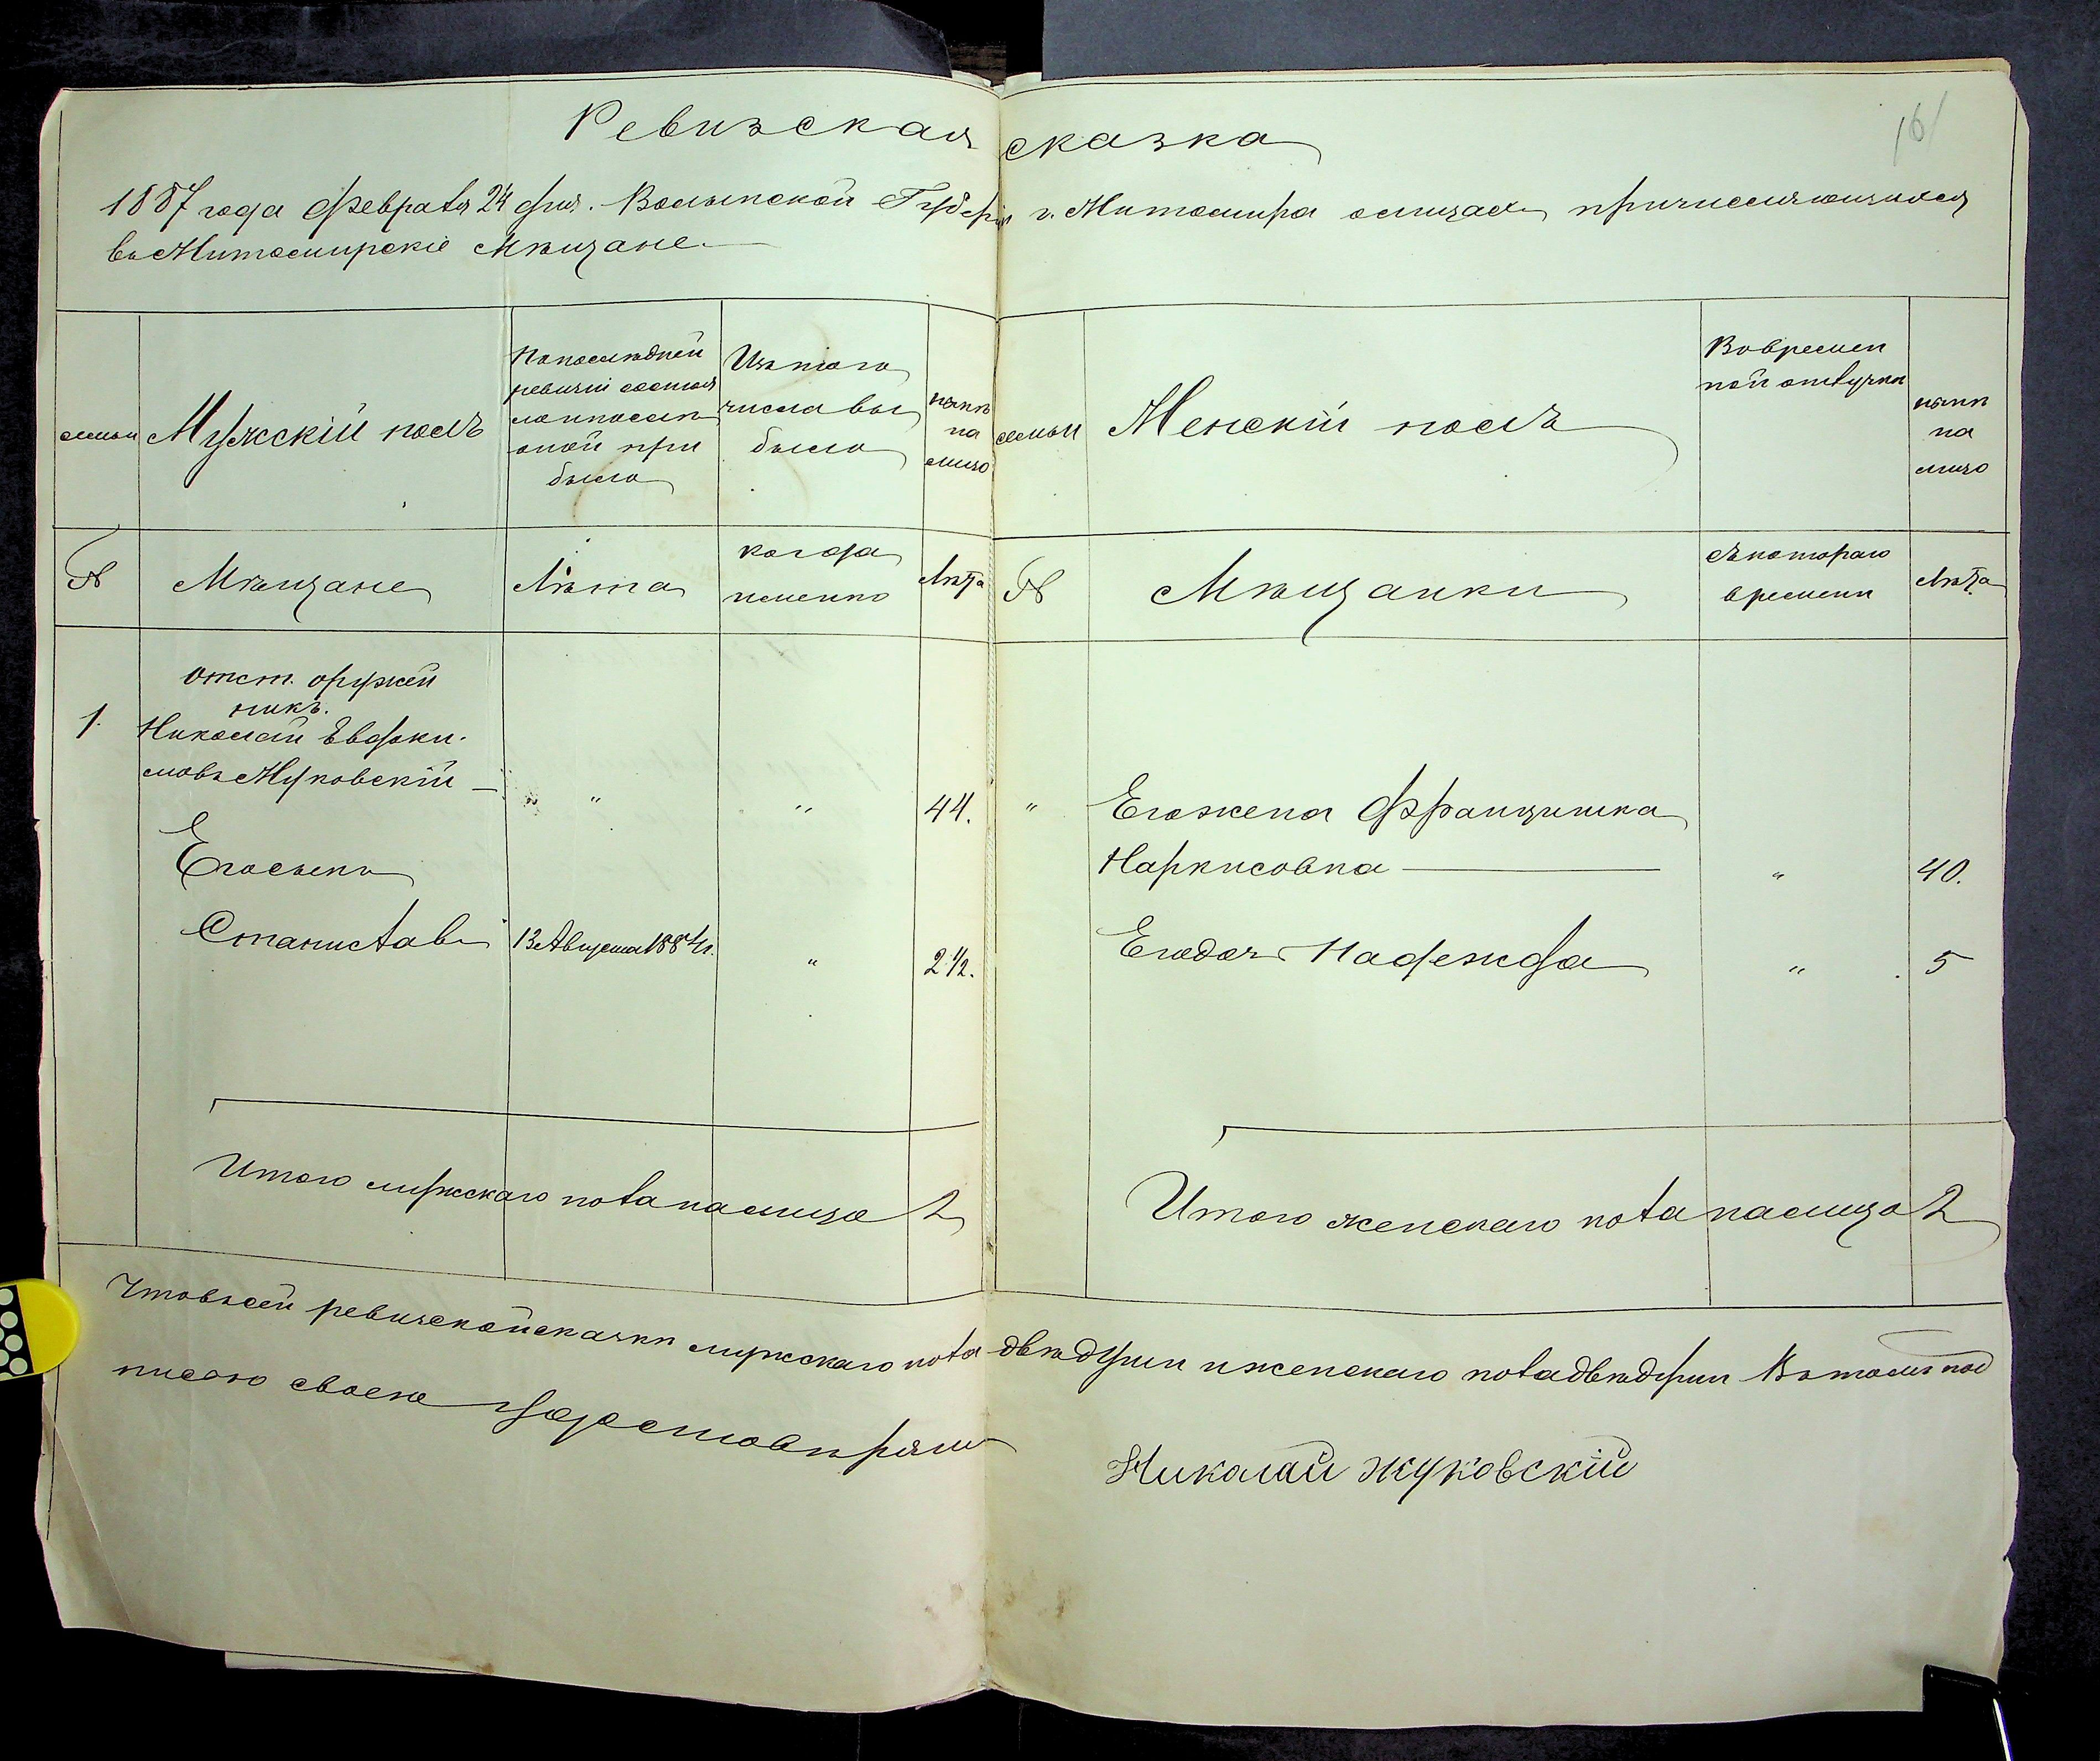 161
Ревизская сказка
1887 года Февраля 24 дня. Волынской Губерніи г. Житомира о лицахъ причисляющихся
въ Житомирскіе Мѣщане.
семьи
Мужскій полъ
По последней
ревизіи состоя
ло и после
оной при
было
Изъ того
числа вы
было
нынѣ
на
лицо
семьи
Женскій полъ
Во времен
ной отлучки
нынѣ
на
лицо
№
Мѣщане
Лѣта
когда
именно
Лѣта
№
Мѣщанки
съ котораго
времени
Лѣта
1.
Отст. оружей
никъ.
Николай Евдоки-
мовъ Жуковскій —
" " 44.
" Его жена Францишка
Наркисовна — " 40.
Его сынъ
Станиславъ 13 Августа 1884 г. " 2 1/2.
Его дочь Надежда " 5
Итого мужскаго пола на лицо 2
Итого женскаго пола на лицо 2
Что въ сей ревизской сказки мужскаго пола двѣ души и женскаго пола двѣ души Въ томъ под
писью своею удостовѣряю
Николай Жуковскій